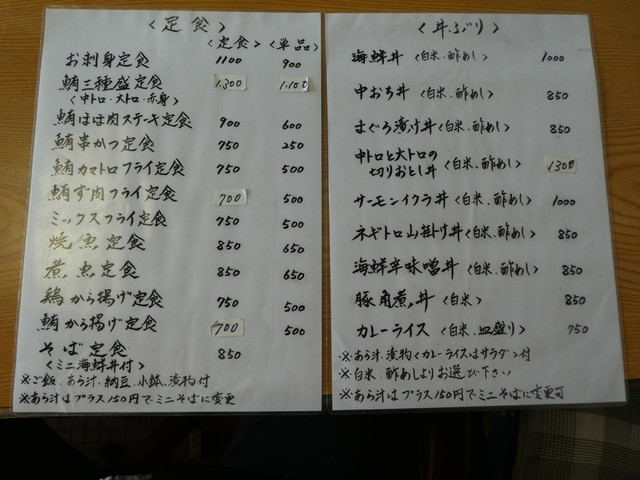 〈定食〉
〈定食〉〈単品〉
お刺身定食 1100 900
鮪三種盛定食 1.300 1.100
〈中トロ・大トロ・赤身〉
鮪ほほ肉ステーキ定食 900 600
鮪串かつ定食 750 250
鮪カマトロフライ定食 750 500
鮪ずり肉フライ定食 700 500
ミックスフライ定食 750 500
焼魚定食 850 650
煮魚定食 850 650
鶏から揚げ定食 750 500
鮪から揚げ定食 700 500
そば定食 850
〈ミニ海鮮丼付〉
※ご飯、あら汁、納豆、小鉢、漬物付
※あら汁はプラス150円でミニそばに変更
〈丼ぶり〉
海鮮丼〈白米、酢めし〉 1000
中おち丼〈白米、酢めし〉 850
まぐろ漬け丼〈白米、酢めし〉 850
中トロと大トロの
切りおとし丼〈白米、酢めし〉 1300
サーモンイクラ丼〈白米、酢めし〉 1000
ネギトロ山掛け丼〈白米、酢めし〉 850
海鮮辛味噌丼〈白米、酢めし〉 850
豚角煮丼〈白米〉 850
カレーライス〈白米、皿盛り〉 750
※あら汁、漬物〈カレーライスはサラダ〉付
※白米、酢めしよりお選び下さい
※あら汁はプラス150円でミニそばに変更可